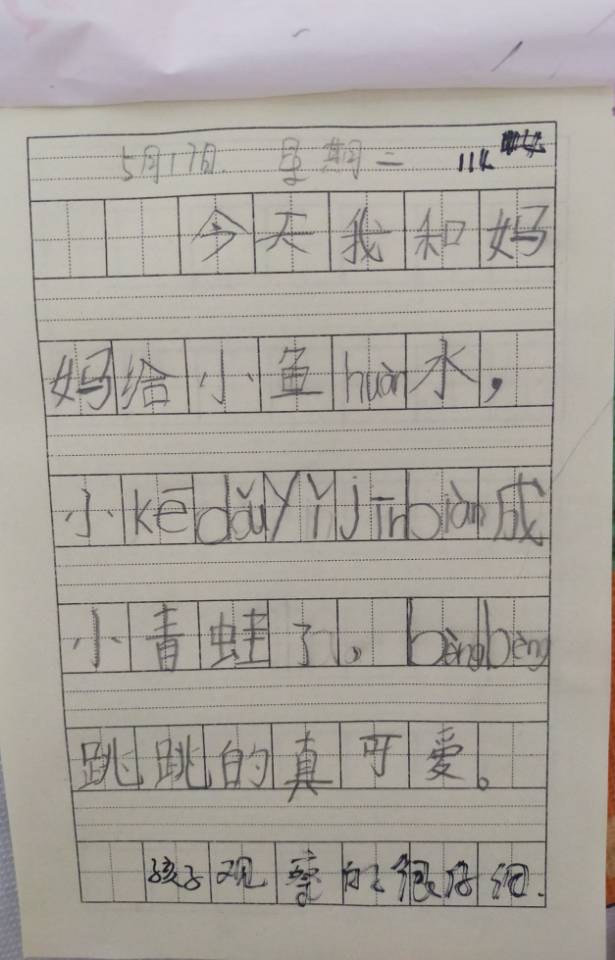 5月17日. 星期二
今天我和妈
妈给小鱼huàn水，
小kēdǎuYǐjīnbiàn成
小青蛙了，bèngbèng
跳跳的真可爱。
孩子观察的很仔细.